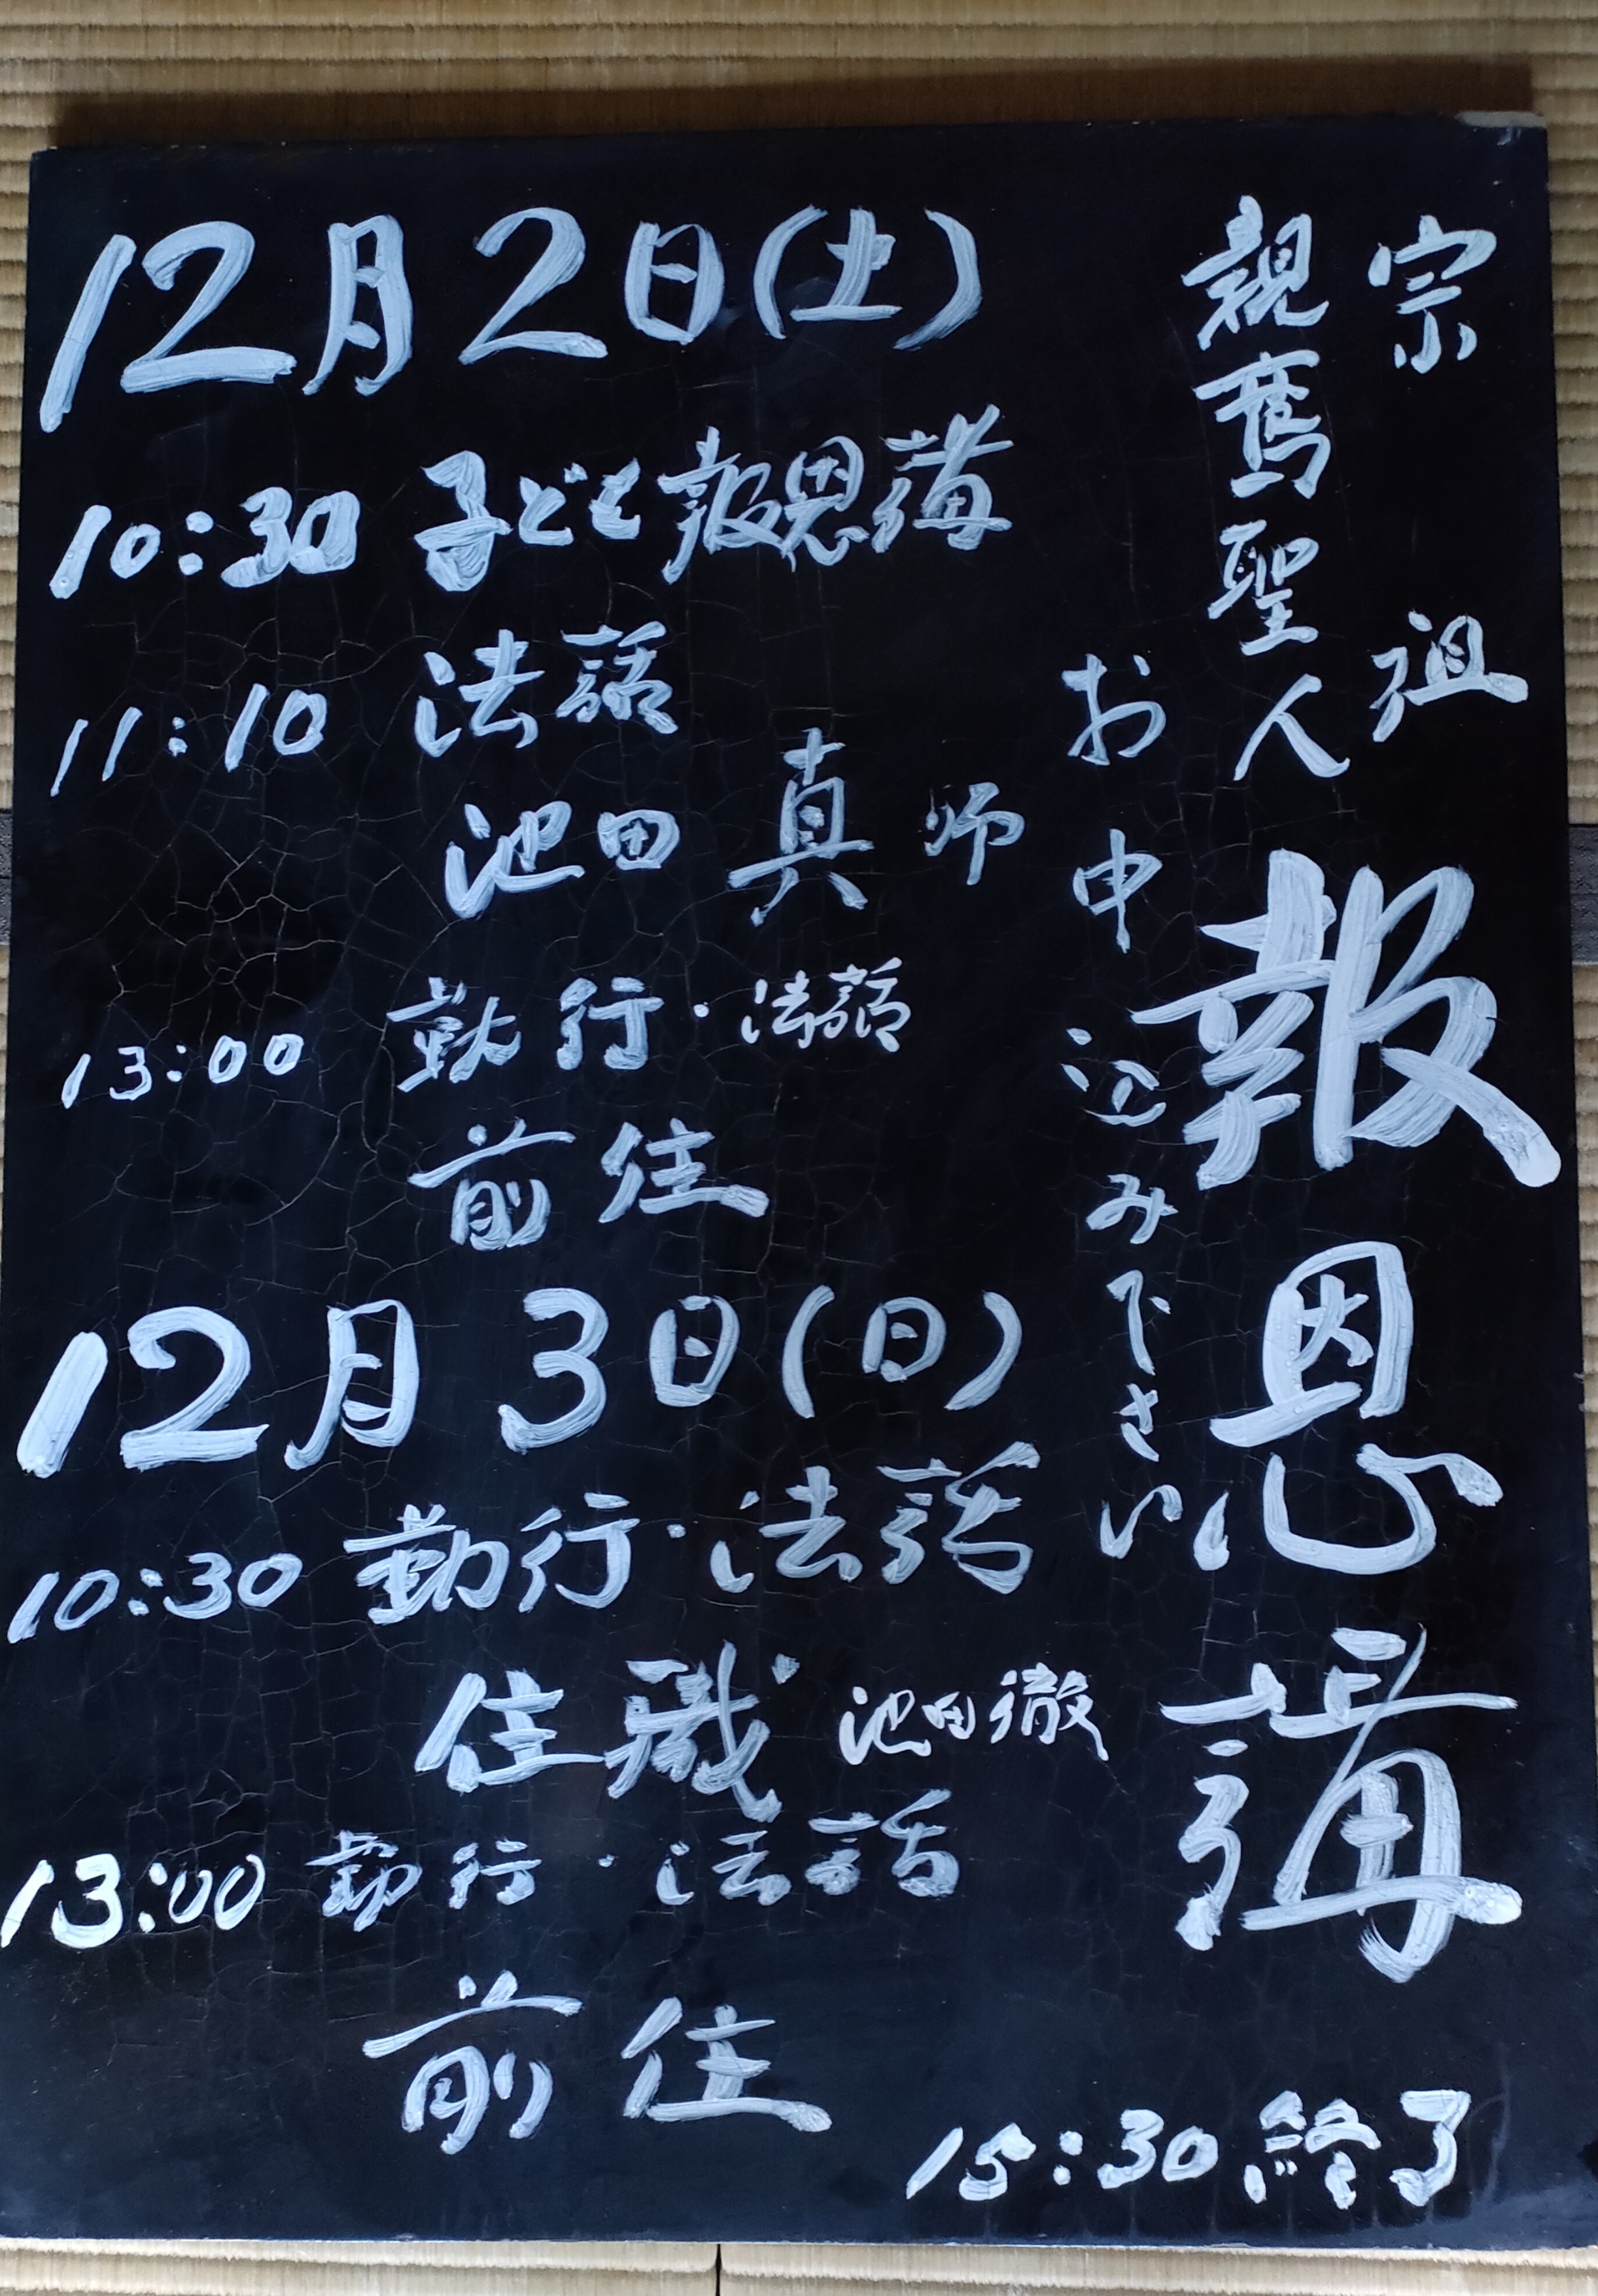 宗祖
親鸞聖人
報恩講
お申込み下さい
12月2日(土)
10:30 子ども報恩講
11:10 法話
池田 真 师
13:00 勤行・法話
前住
12月3日(日)
10:30 勤行・法話
住職 池田徹
13:00 勤行・法話
前住
15:30 終了